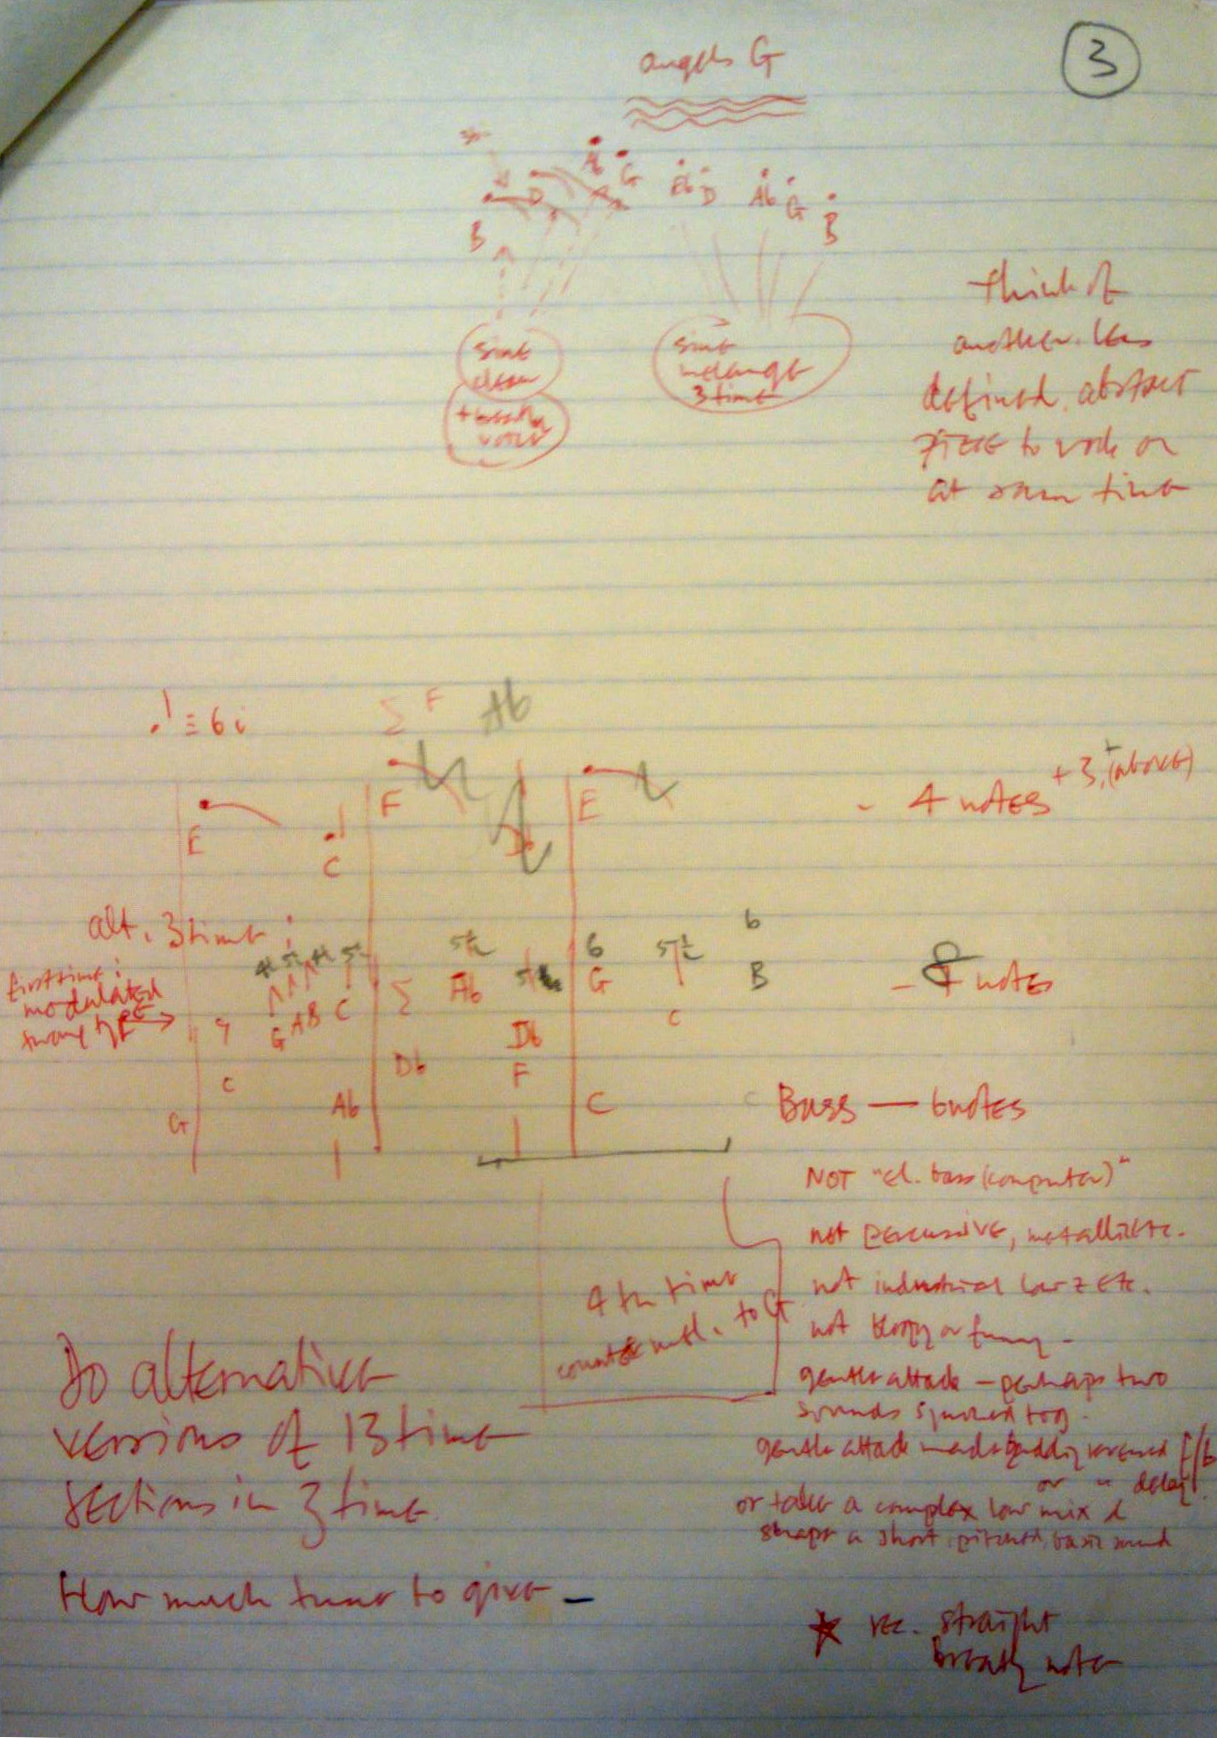 3
angels G
Ab G Eb D Ab G B
B D
sing
clean
+ breathy
voice
sing
melange
3 time
think of
another, less
defined, abstract
piece to work on
at same time
≡ 6
Σ F Ab
F E
E C Db
- 4 notes + 3 (above)
alt. 3 time
first time:
modulated
5½ 5½ 6 5½ 6
G A B C Σ Ab G B
- 8 notes
C Db Db C
F
G Ab C
Bass — 6 notes
NOT "el. bass (computer)"
not percussive, metallic etc.
not industrial low z etc.
not or funny -
gentle attack - perhaps two
sounds synched tog.
gentle attack made by adding reversed
or " delay
or take a complex low mix &
shape a short, pitched, basic sound
4th time
to G
Do alternative
versions of 13 time
sections in 3 time.
How much time to give —
★ rec. straight
breathy notes